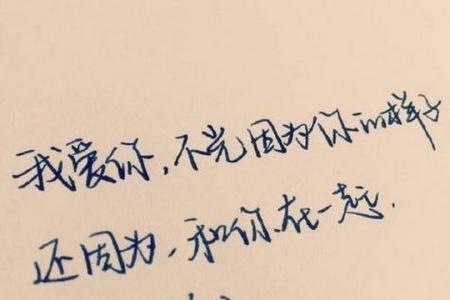 我爱你，不光因为你的样子
还因为，和你在一起.